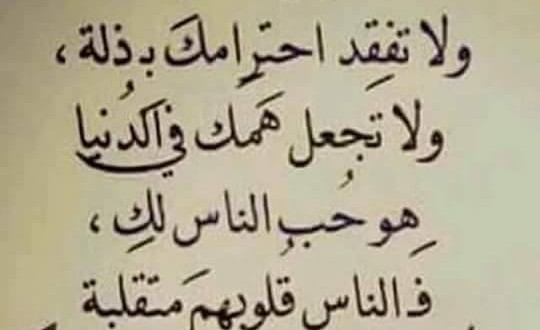 ولا تفقد احترامكَ بـ ذلة ،
ولا تجعل هَمك في الدُنيا
هو حُب الناس لكِ ،
فـ الناس قلوبهم متقلبة